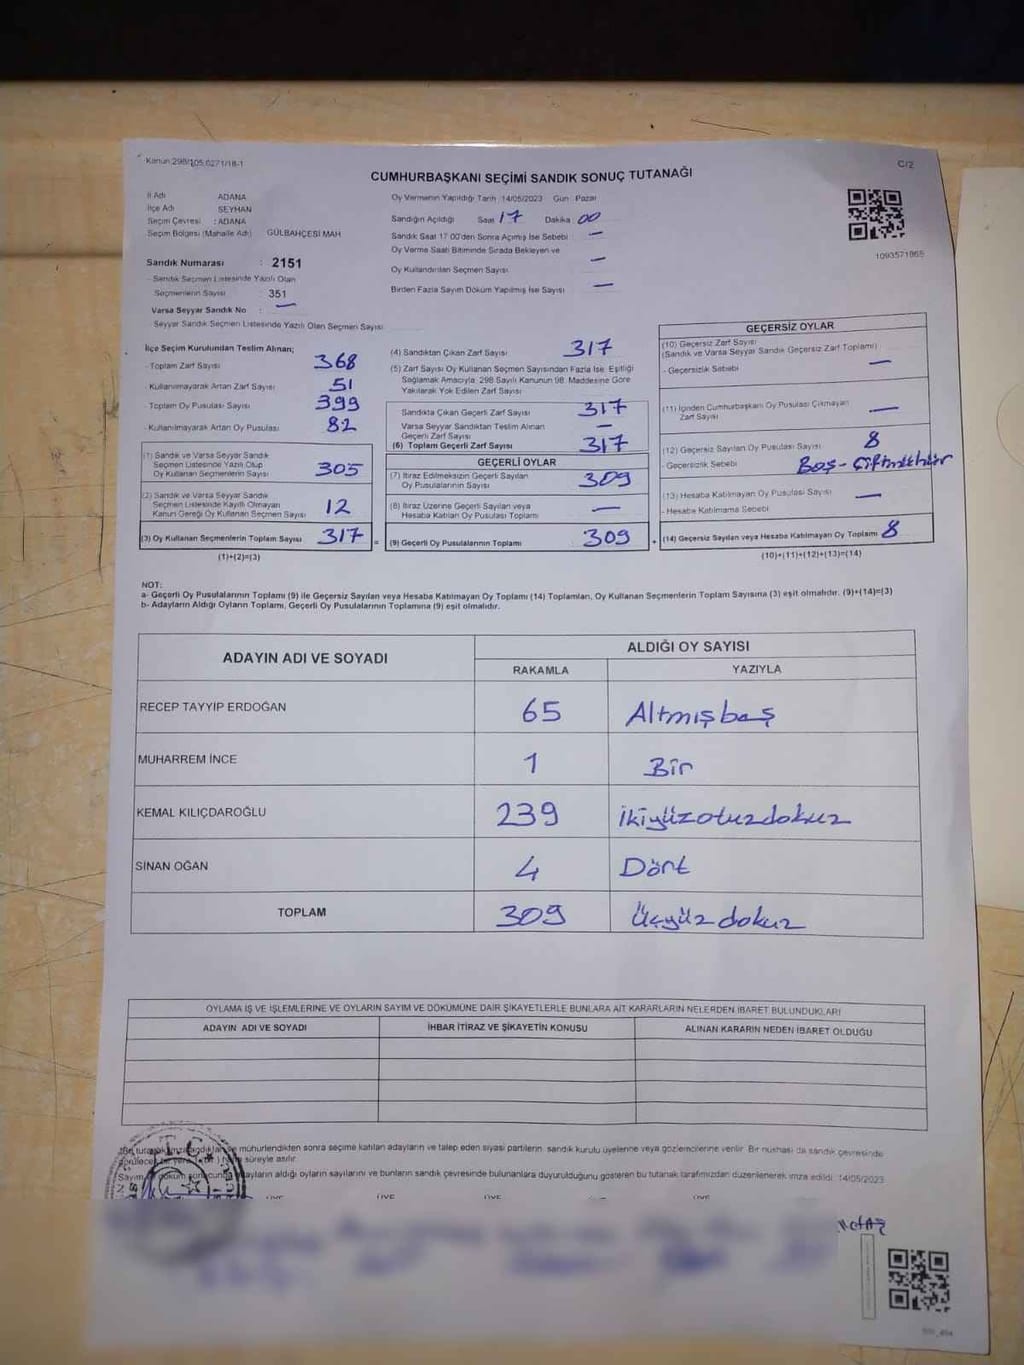 Kanun:298/105,6271/18-1
C/2
CUMHURBAŞKANI SEÇİMİ SANDIK SONUÇ TUTANAĞI
İl Adı ADANA
İlçe Adı SEYHAN
Seçim Çevresi : ADANA
Seçim Bölgesi (Mahalle Adı) GÜLBAHÇESİ MAH
Sandık Numarası : 2151
- Sandık Seçmen Listesinde Yazılı Olan
Seçmenlerin Sayısı : 351
Varsa Seyyar Sandık No : —
Seyyar Sandık Seçmen Listesinde Yazılı Olan Seçmen Sayısı
Oy Vermenin Yapıldığı Tarih :14/05/2023 Gün : Pazar
Sandığın Açıldığı Saat 17 Dakika 00
Sandık Saat 17.00'den Sonra Açılmış İse Sebebi : —
Oy Verme Saati Bitiminde Sırada Bekleyen ve
Oy Kullandırılan Seçmen Sayısı —
Birden Fazla Sayım Döküm Yapılmış İse Sayısı —
1093571865
İlçe Seçim Kurulundan Teslim Alınan;
- Toplam Zarf Sayısı 368
- Kullanılmayarak Artan Zarf Sayısı 51
- Toplam Oy Pusulası Sayısı 399
- Kullanılmayarak Artan Oy Pusulası 82
(1) Sandık ve Varsa Seyyar Sandık
Seçmen Listesinde Yazılı Olup
Oy Kullanan Seçmenlerin Sayısı 305
(2) Sandık ve Varsa Seyyar Sandık
Seçmen Listesinde Kayıtlı Olmayan
Kanun Gereği Oy Kullanan Seçmen Sayısı 12
(3) Oy Kullanan Seçmenlerin Toplam Sayısı 317 =
(1)+(2)=(3)
(4) Sandıktan Çıkan Zarf Sayısı 317
(5) Zarf Sayısı Oy Kullanan Seçmen Sayısından Fazla İse, Eşitliği
Sağlamak Amacıyla, 298 Sayılı Kanunun 98. Maddesine Göre
Yakılarak Yok Edilen Zarf Sayısı
Sandıkta Çıkan Geçerli Zarf Sayısı 317
Varsa Seyyar Sandıktan Teslim Alınan
Geçerli Zarf Sayısı —
(6) Toplam Geçerli Zarf Sayısı 317
GEÇERLİ OYLAR
(7) İtiraz Edilmeksizin Geçerli Sayılan
Oy Pusulalarının Sayısı 309
(8) İtiraz Üzerine Geçerli Sayılan veya
Hesaba Katılan Oy Pusulası Toplamı —
(9) Geçerli Oy Pusulalarının Toplamı 309 +
GEÇERSİZ OYLAR
(10) Geçersiz Zarf Sayısı
(Sandık ve Varsa Seyyar Sandık Geçersiz Zarf Toplamı)
- Geçersizlik Sebebi —
(11) İçinden Cumhurbaşkanı Oy Pusulası Çıkmayan
Zarf Sayısı —
(12) Geçersiz Sayılan Oy Pusulası Sayısı 8
- Geçersizlik Sebebi Boş-
(13) Hesaba Katılmayan Oy Pusulası Sayısı —
- Hesaba Katılmama Sebebi
(14) Geçersiz Sayılan veya Hesaba Katılmayan Oy Toplamı 8
(10)+(11)+(12)+(13)=(14)
NOT:
a- Geçerli Oy Pusulalarının Toplamı (9) ile Geçersiz Sayılan veya Hesaba Katılmayan Oy Toplamı (14) Toplamları, Oy Kullanan Seçmenlerin Toplam Sayısına (3) eşit olmalıdır. (9)+(14)=(3)
b- Adayların Aldığı Oyların Toplamı, Geçerli Oy Pusulalarının Toplamına (9) eşit olmalıdır.
ADAYIN ADI VE SOYADI
ALDIĞI OY SAYISI
RAKAMLA YAZIYLA
RECEP TAYYIP ERDOĞAN 65 Altmışbeş
MUHARREM İNCE 1 Bir
KEMAL KILIÇDAROĞLU 239 İkiyüzotuzdokuz
SİNAN OĞAN 4 Dört
TOPLAM 309 Üçyüzdokuz
OYLAMA İŞ VE İŞLEMLERİNE VE OYLARIN SAYIM VE DÖKÜMÜNE DAİR ŞİKAYETLERLE BUNLARA AİT KARARLARIN NELERDEN İBARET BULUNDUKLARI
ADAYIN ADI VE SOYADI İHBAR İTİRAZ VE ŞİKAYETİN KONUSU ALINAN KARARIN NEDEN İBARET OLDUĞU
mühürlendikten sonra seçime katılan adayların ve talep eden siyasi partilerin sandık kurulu üyelerine veya gözlemcilerine verilir. Bir nüshası da sandık çevresinde
süreyle asılır.
aldığı oyların sayılarını ve bunların sandık çevresinde bulunanlara duyurulduğunu gösteren bu tutanak tarafımızdan düzenlenerek imza edildi. 14/05/2023
T.C.
ÜYE ÜYE ÜYE ÜYE ÜYE